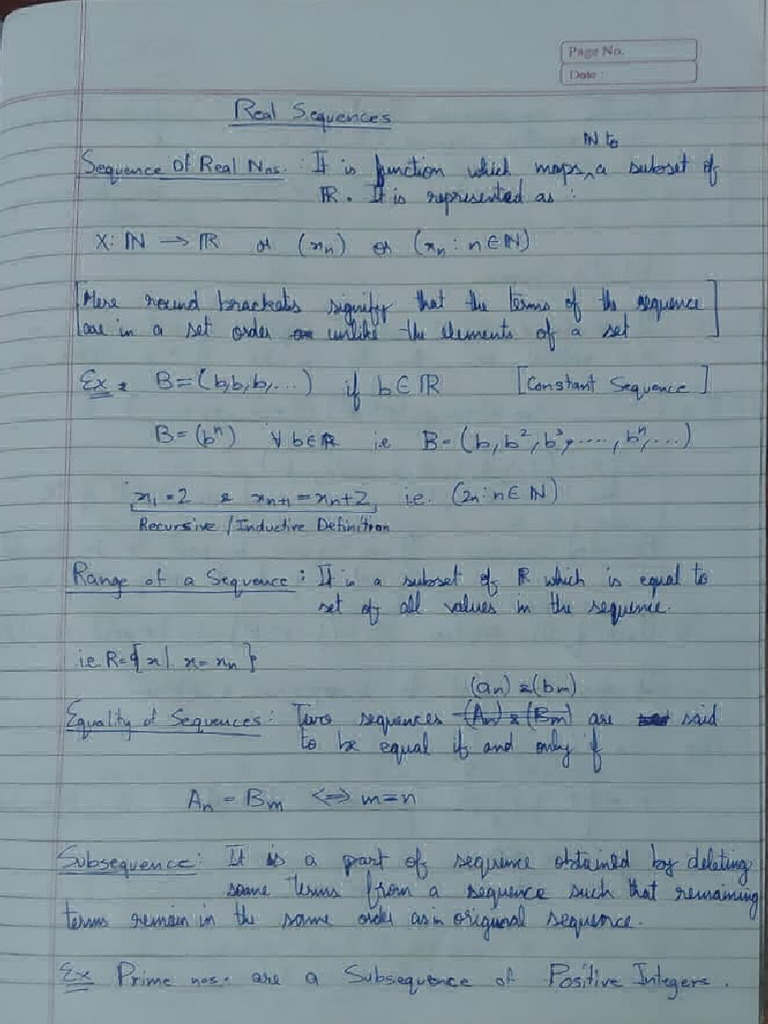 Page No.
Date :
Real Sequences
IN to
Sequence Of Real Nos. : It is function which maps ^ a subset of
IR. It is represented as :
X: IN → IR or (xn) or (xn : n ∈ IN)
[Here round brackets signify that the terms of the sequence
are in a set order unlike the elements of a set]
Ex B = (b,b,b,...) if b ∈ IR [Constant Sequence]
B = (bⁿ) ∀ b ∈ IR ie B = (b, b², b³, ...., bⁿ, ...)
x₁ = 2 & xn+1 = xn + 2, i.e. (2n : n ∈ IN)
Recursive / Inductive Definition
Range of a Sequence : It is a subset of IR which is equal to
set of all values in the sequence.
ie R = {x | x = xn}
(an) & (bm)
Equality of Sequences : Two sequences (An) & (Bm) are said
to be equal if and only if
An = Bm <=> m = n
Subsequence : It is a part of sequence obtained by deleting
some terms from a sequence such that remaining
terms remain in the same order as in origunal sequence.
Ex Prime nos. are a Subsequence of Positive Integers.